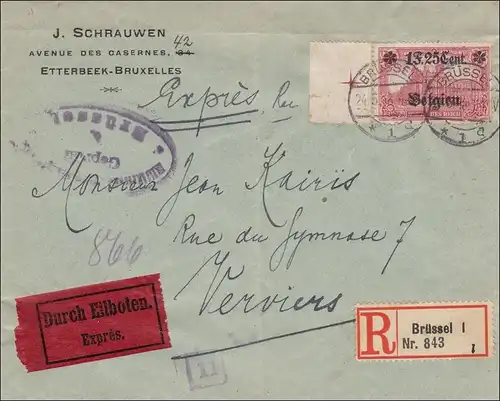 J. SCHRAUWEN
42
AVENUE DES CASERNES, 34
ETTERBEEK-BRUXELLES
Exprès
1 3.25 Cent.
Belgien
BRÜSSEL
* 1 c
BRÜSSEL
* 1 c
Brüssel
Geprüft
Monsieur Jean Kairis
Rue du Gymnase 7
Verviers
866
Durch Eilboten.
Exprès.
R
Brüssel 1
Nr. 843
l
II